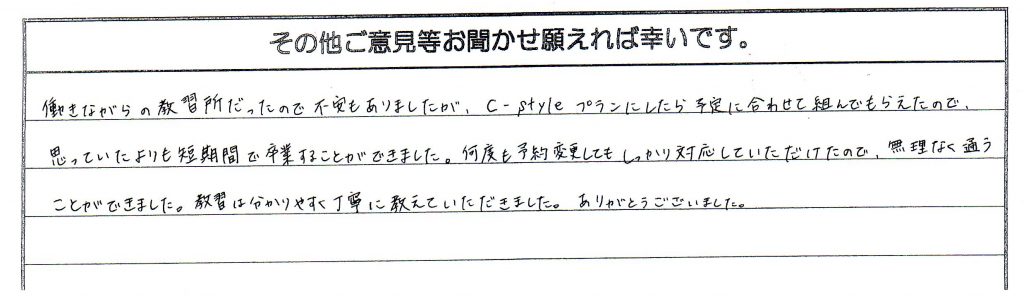 その他ご意見等お聞かせ願えれば幸いです。
働きながらの教習所だったので不安もありましたが、C-styleプランにしたら予定に合わせて組んでもらえたので、
思っていたよりも短期間で卒業することができました。何度も予約変更してもしっかり対応していただけたので、無理なく通う
ことができました。教習は分かりやすく丁寧に教えていただきました。ありがとうございました。